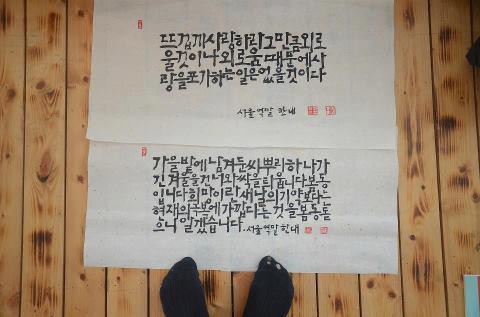 뜨겁게사랑하라그만큼외로
울것이나외로움때문에사
랑을포기하는일은없을것이다
서울역말 한내
가을밭에남겨둔씨뿌리하나가
긴겨울을건너와싹을틔웁니다봄동
입니다희망이란새날의기약보다는
현재의극복에가깝다는것을봄동돋
으니알겠습니다.서울역말한내